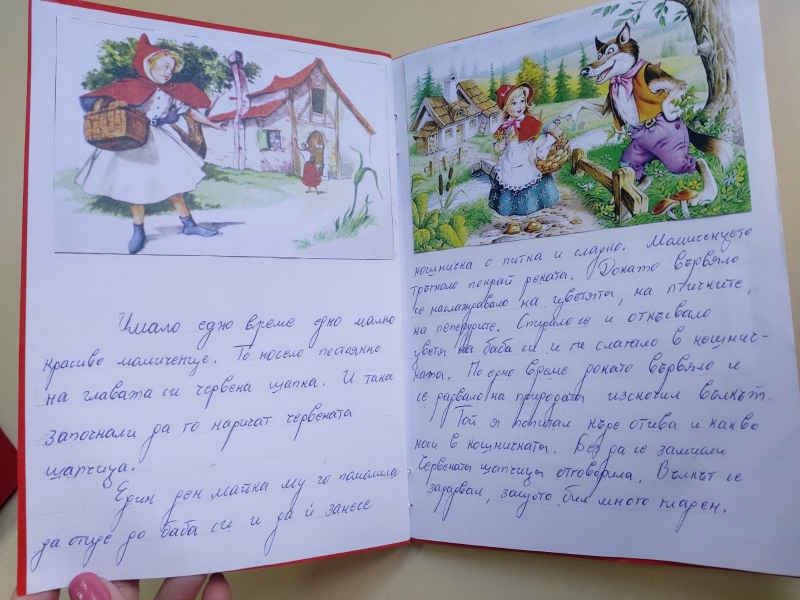 Имало едно време едно малко
красиво момиченце. То носело постоянно
на главата си червена шапка. И така
започнали да го наричат червената
шапчица.
Един ден майка му го помолила
да отиде до баба си и да ѝ занесе
кошничка с питка и сладко. Момиченцето
тръгнало покрай реката. Докато вървяло
се наслаждавало на цветята, на птичките,
на пеперудите. Спирало се и откъсвало
цветя на баба си и ги слагало в кошнич-
ката. По едно време докато вървяло и
се радвало на природата изскочил вълкът.
Той я попитал къде отива и какво
носи в кошничката. Без да се замисли
Червената шапчица отговорила. Вълкът се
зарадвал, защото бил много гладен.